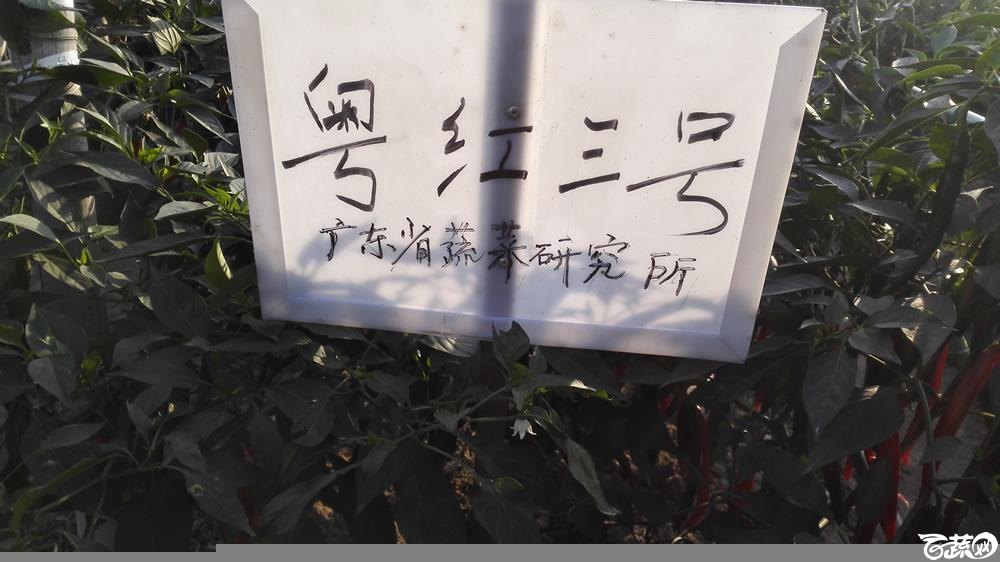 粤红三号
广东省蔬菜研究所
百蔬网